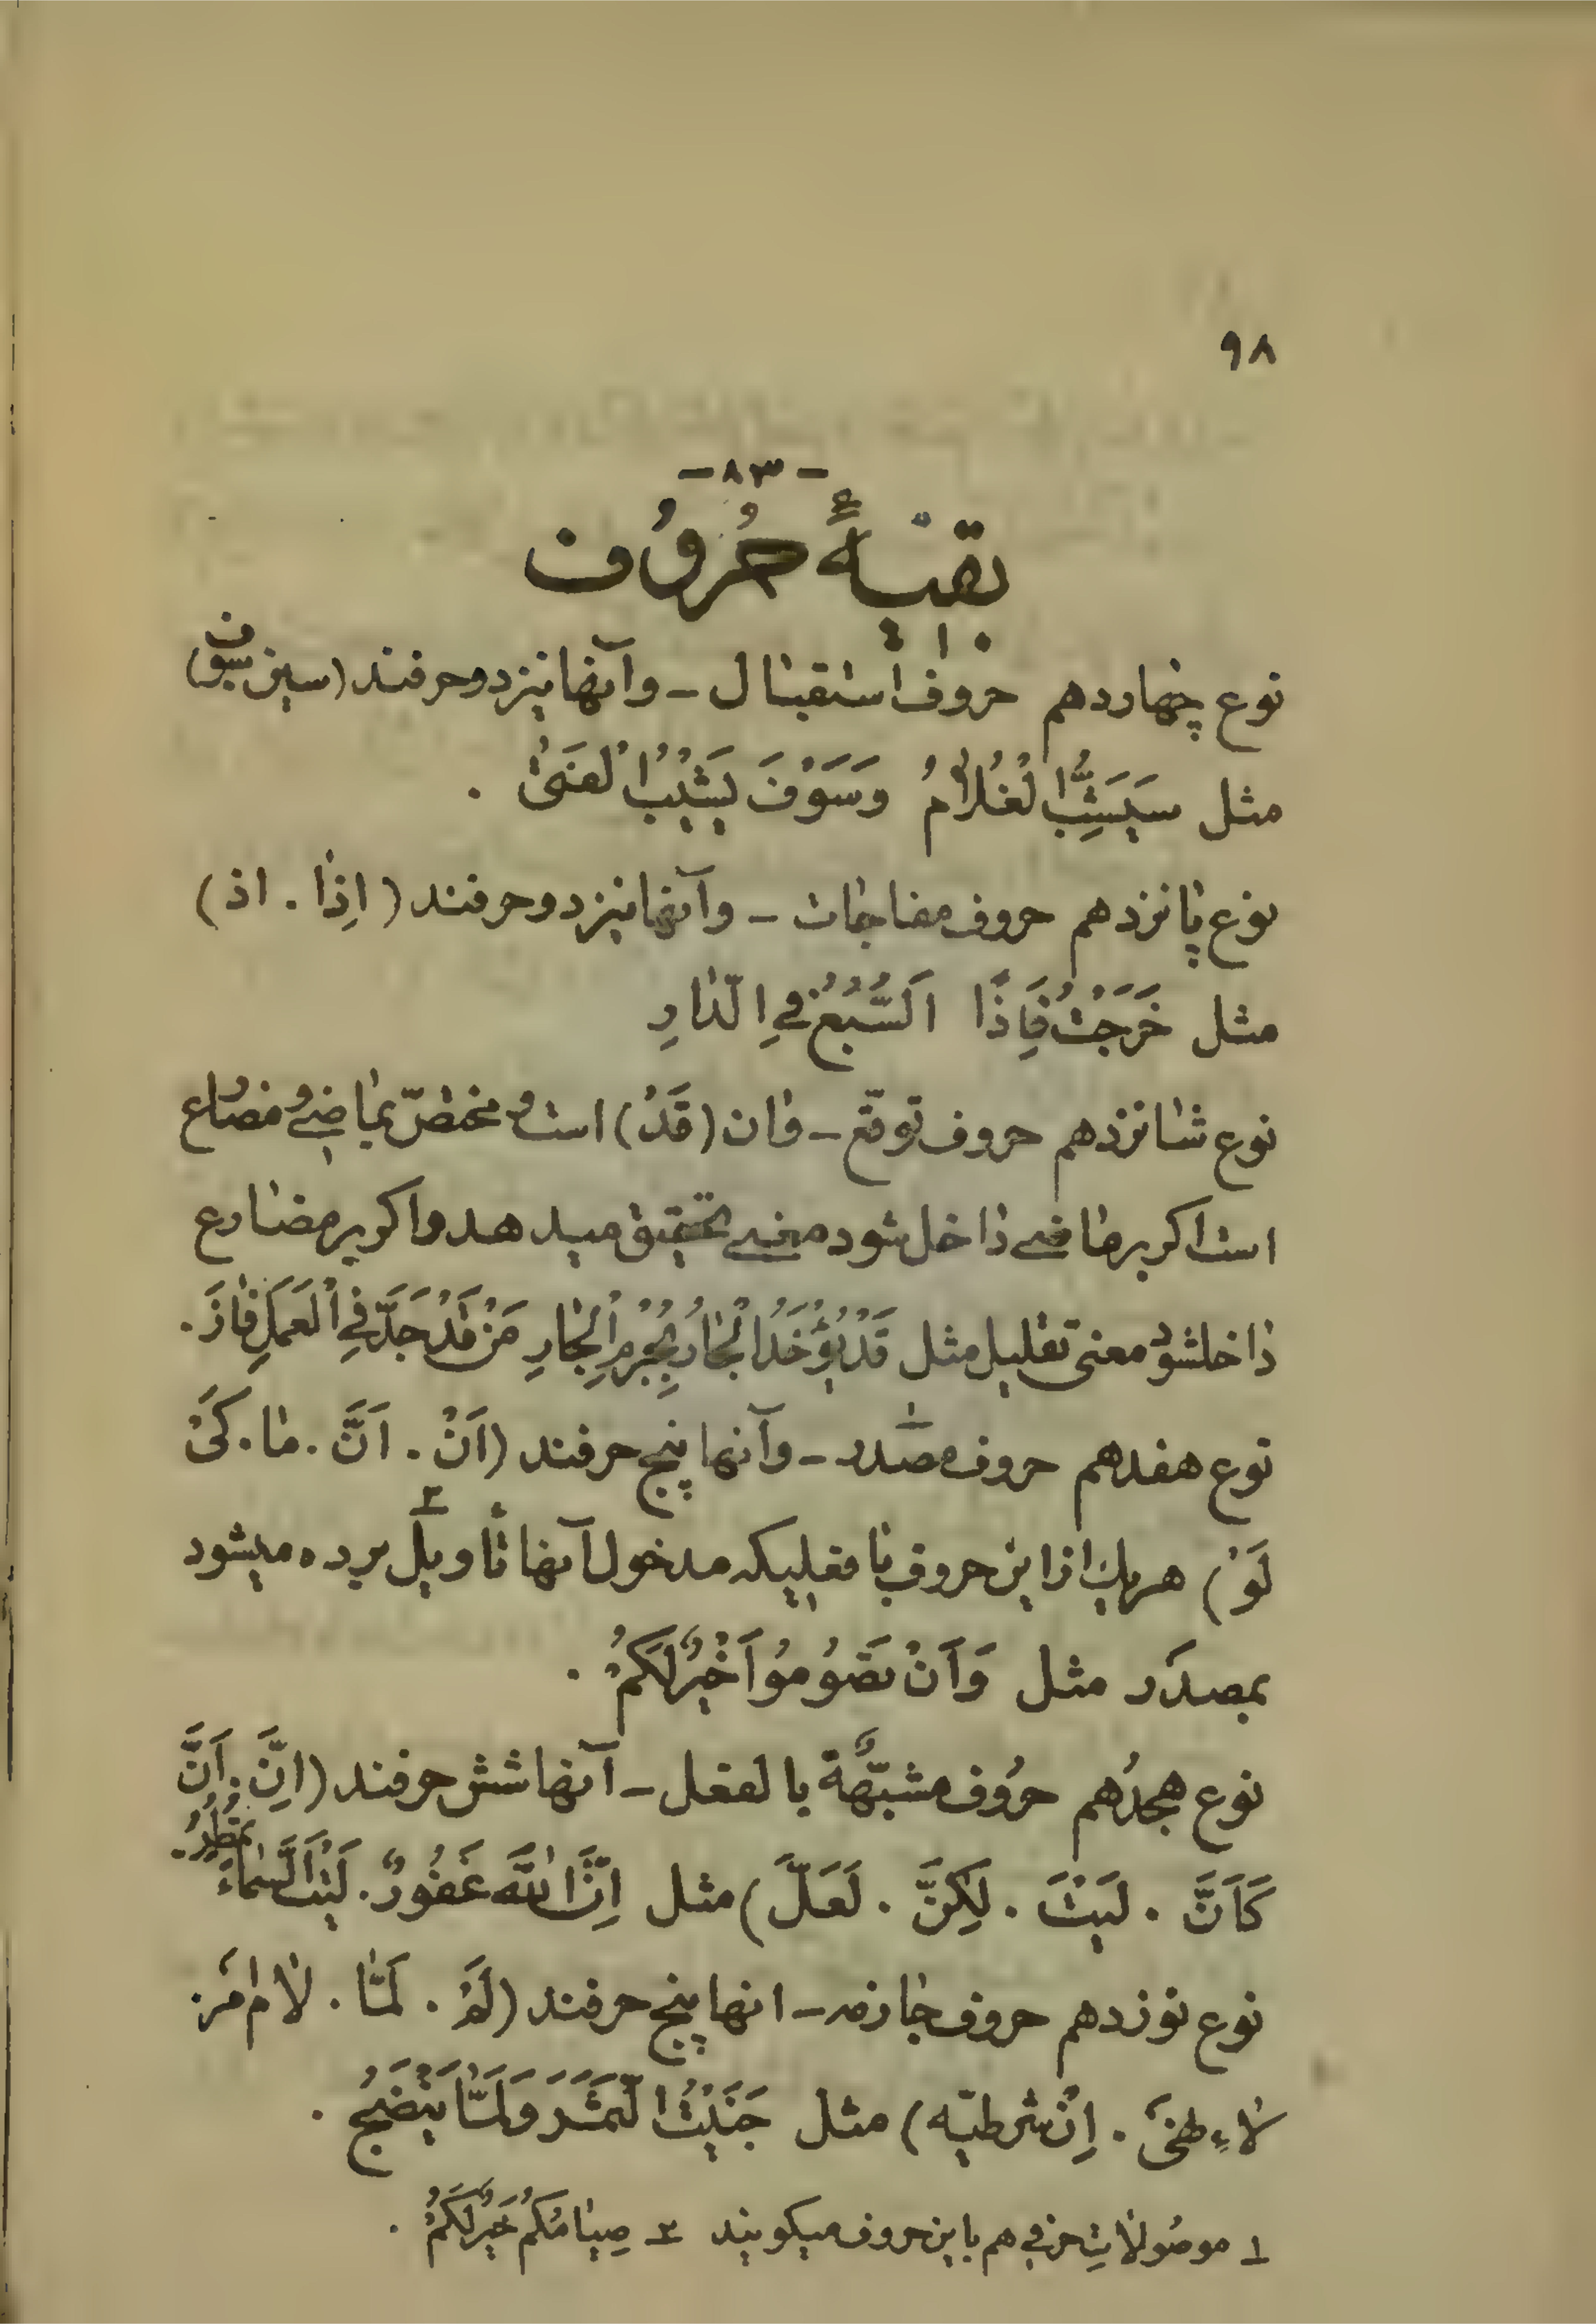 ۹۸
-۸۳-
بقیهٔ حُروُف
نوع چهاردهم حروف استقبال - و آنها نیز دو حرفند (سین سوف)
مثل سَیَشِبُّ الْغُلاٰمُ وَسَوْفَ یَشْیُبُ الْفَتیٰ .
نوع پانزدهم حروف مفاجات - و آنها نیز دو حرفند ( اِذٰا . اذ )
مثل خَرَجْتُ فَاِذًا اَلسَّبُعُ فِی الدّٰارِ
نوع شانزدهم حروف توقّع - وان (قَدْ) است و مختصّ بماضی و مضارع
است اکر بر ماضی داخل شود معنی تحقیق میدهد واکر بر مضارع
داخلشود معنی تقلیل مثل قَدْ یُؤْخَذُ الْجٰارُ بِجُرْمِ الْجٰارِ مَنْ قَدْ جَدَّ فِی الْعَمَلِ فٰازَ .
نوع هفدهم حروف مصدر ۱ - و آنها پنج حرفند (اَنْ . اَنَّ . مٰا . کَیْ
لَوْ) هر یك از این حروف با فعلیکه مدخول آنها تأویل ۲ برده میشود
بمصدَر مثل وَاَنْ تَصُوُموُا خَیْرٌ لَکُمْ .
نوع هجدُهم حرُوف مشبّهةٌ بالفعل - آنها شش حرفند (اِنَّ . اَنَّ
کَاَنَّ . لَیْتَ . لٰکِنَّ . لَعَلَّ) مثل اِنَّ اللّٰهَ غَفُورٌ . لَیْتَ السَّمٰاءَ تمْطُرُ .
نوع نوزدهم حروف جازمه - انها پنج حرفند (لَمْ . لَمّٰا . لام امر .
لاءِ نهی . اِنْ شرطیّه) مثل جَنَیْتُ الثَّمَرَ وَلَمّٰا یَنْضَجُ .
۱ موصُولاتِ حرفی هم باین حروف میکویند ۲ صِیٰامُکُمْ خَیْرٌ لَکُمْ .